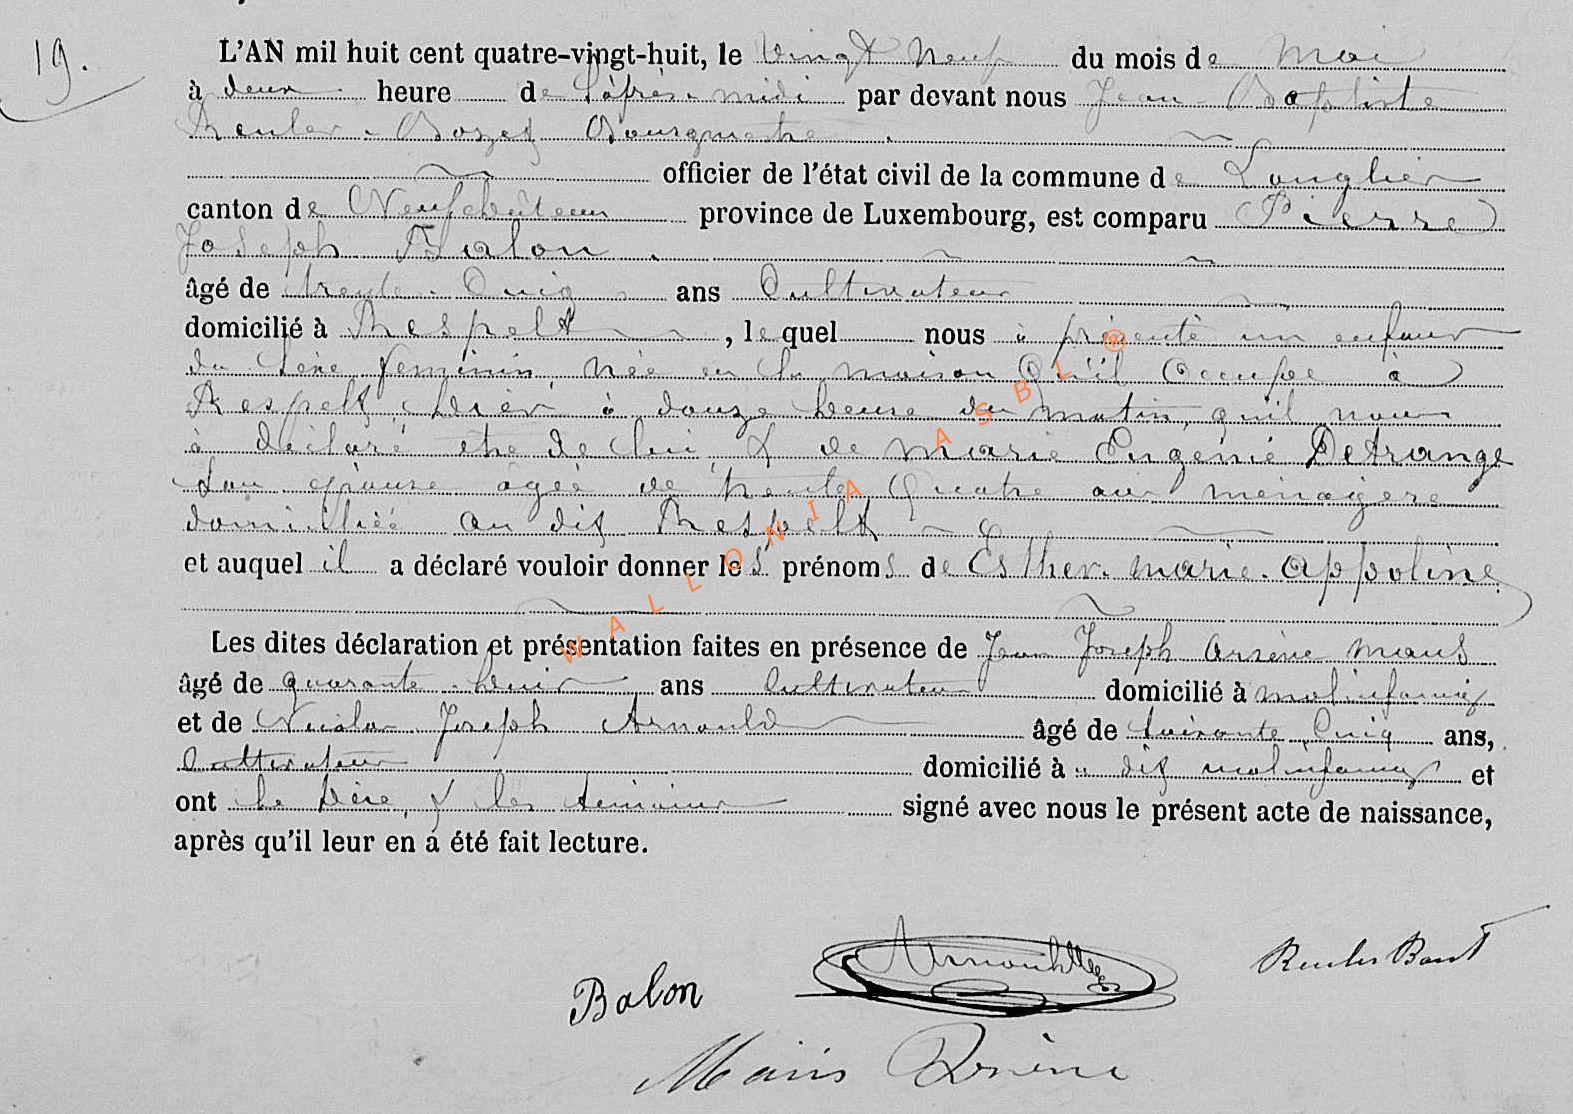 19.
L'AN mil huit cent quatre-vingt-huit, le vingt neuf du mois de mai
à deux heure de l'après-midi par devant nous Jean Baptiste
Reuler - Bourgmestre
officier de l'état civil de la commune de Longlier
canton de Neufchâteau province de Luxembourg, est comparu Pierre
Joseph Balon
âgé de trente-Cinq ans Cultivateur
domicilié à Respelt, lequel nous à présenté un enfant
du sexe feminin, née en la maison qu'il occupe à
Respelt, hier à douze heure du matin, qu'il nous
à déclaré etre de lui & de marie Eugénie Detrange
son épouse agée de trente Quatre ans ménagère
domiciliée au dit Respelt
et auquel il a déclaré vouloir donner les prénoms de Esther. marie. Appoline
Les dites déclaration et présentation faites en présence de Jean Joseph Arsène maus
âgé de quarante-huit ans Cultivateur domicilié à molinfaing
et de Nicolas Joseph Arnould âgé de soixante Cinq ans,
Cultivateur domicilié à dit molinfaing et
ont le père, & les témoins signé avec nous le présent acte de naissance,
après qu'il leur en a été fait lecture.
WALLONIA ASBL @
Arnould
Balon
Arsène